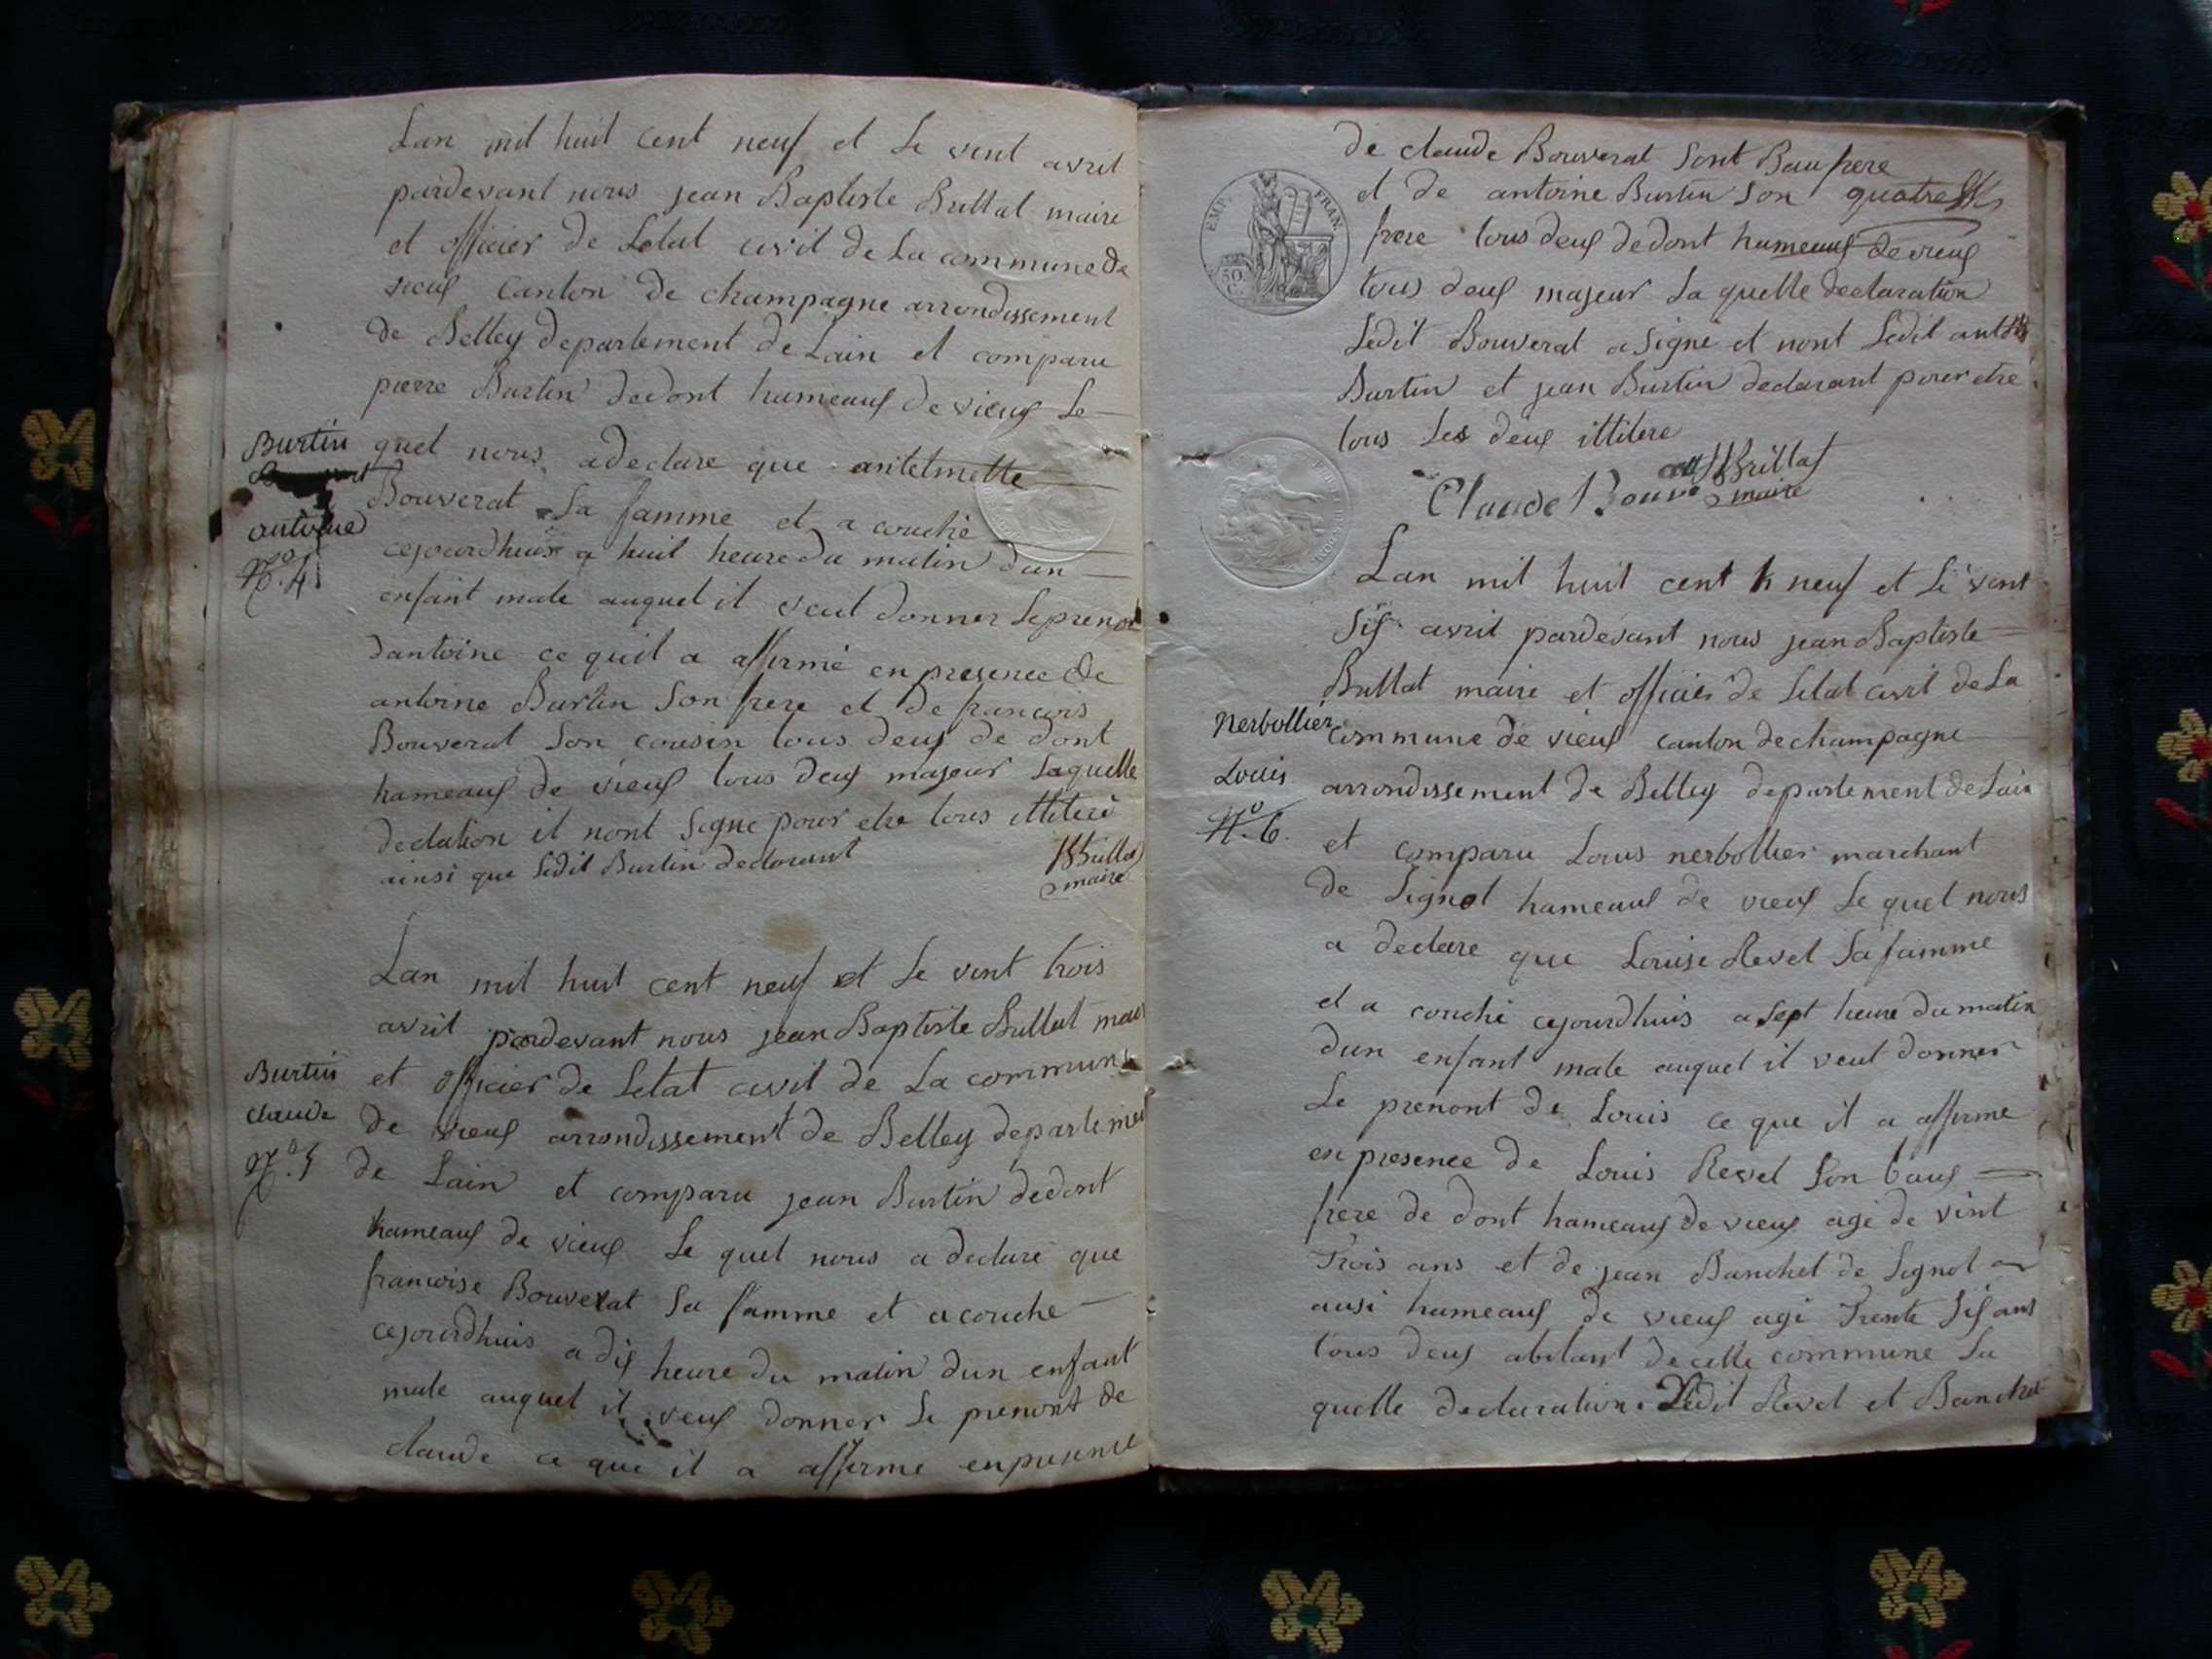 Lan mil huit cent neuf et Le vint avril
pardevant nous jean Baptiste Brillat maire
et officier de Letat civil de La commune de
vieux Canton de champagne arrondissement
de Belley departement de Lain et comparu
pierre Burtin dedont hameaux de vieux Le
Burtin
quel nous adeclare que antelmette
Bouverat Sa famme et a couché
antoine
cejourdhuis a huit heure du matin dun
N.º 4
enfant male auquel il veut donner Leprenom
dantoine ce quil a affirmé en presence de
antoine Burtin Son frere et de francois
Bouverat Son cousin tous deux de dont
hameaux de vieux tous deux majeur Laquelle
declation il nont Signe pour etre tous illiteré
ainsi que Ledit Burtin declarant
JBBrillat
maire
Lan mil huit cent neuf et Le vint trois
avril pardevant nous jean Baptiste Brillat mair
Burtin
et officier de Letat civil de La commune
claude
de vieux arrondissement de Belley departement
N.º 5
de Lain et comparu jean Burtin dedont
hameaux de vieux Le quel nous a declaré que
francoise Bouverat Sa famme et acouché
cejourdhuis a dix heure du matin dun enfant
male auquel il veux donner Le prenont de
claude ce que il a afferme enpresence
de claude Bouverat Sont Baufrere
et de antoine Burtin Son quatre
frere tous deux dedont hameaux de vieux
tous deux majeur La quelle declaration
Ledit Bouverat a Signé et nont Ledit
Burtin et jean Burtin declarant pour etre
tous Les deux illitere
Claude Bouve
JBBrillat
maire
EMP. FRAN.
50
Lan mil huit cent neuf et Le vint
Six avril pardevant nous jean Baptiste
Brillat maire et officier de Letat civil de La
Nerbollier
commune de vieux canton de champagne
Louis
arrondissement de Belley departement de Lain
N.º 6.
et comparu Louis nerbollier marchant
de Lignol hameaux de vieux Le quel nous
a declare que Louise Revel Sa famme
et a couché cejourdhuis a Sept heure du matin
dun enfant male auquel il veut donner
Le prenont de Louis ce que il a afferme
en presence de Louis Revel Son baux
frere de dont hameaux de vieux agé de vint
Trois ans et de jean Banchet de Lignol
ausi hameaux de vieux agé Trente Six ans
tous deux abitant de cette commune La
quelle declaration Ledit Revel et Banchet